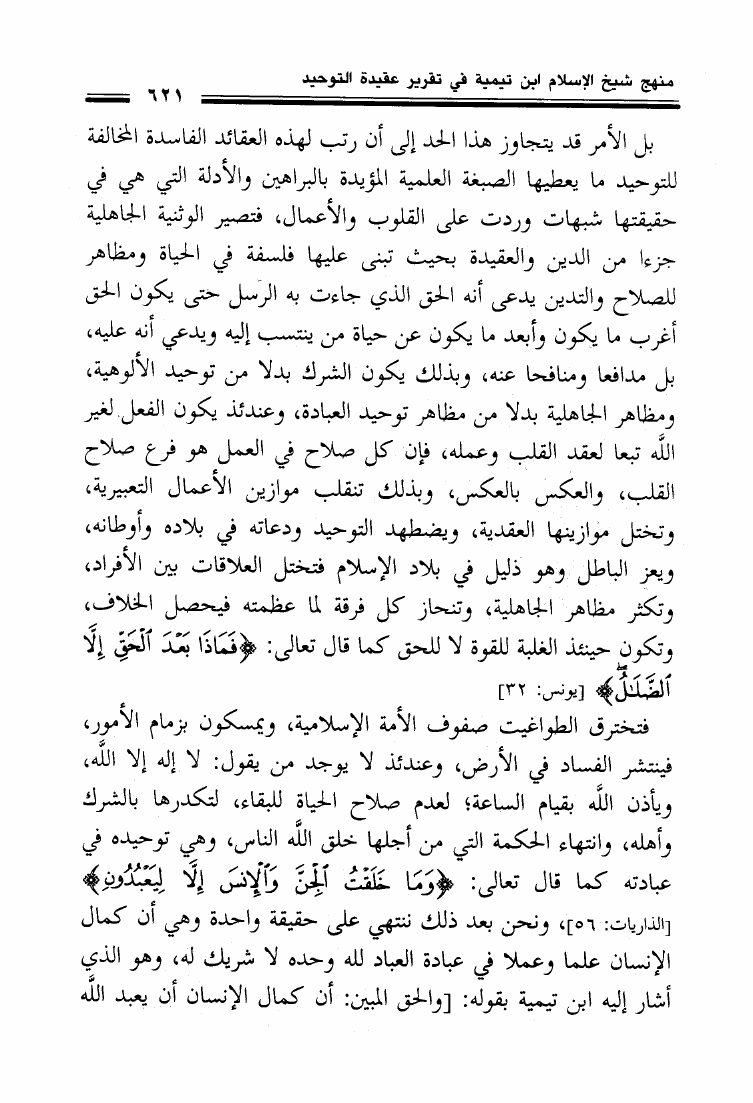 منهج شيخ الإسلام ابن تيمية في تقرير عقيدة التوحيد
٦٢١
بل الأمر قد يتجاوز هذا الحد إلى أن رتب لهذه العقائد الفاسدة المخالفة
للتوحيد ما يعطيها الصبغة العلمية المؤيدة بالبراهين والأدلة التي هي في
حقيقتها شبهات وردت على القلوب والأعمال، فتصير الوثنية الجاهلية
جزءا من الدين والعقيدة بحيث تبنى عليها فلسفة في الحياة ومظاهر
للصلاح والتدين يدعى أنه الحق الذي جاءت به الرسل حتى يكون الحق
أغرب ما يكون وأبعد ما يكون عن حياة من ينتسب إليه ويدعي أنه عليه،
بل مدافعا ومنافحا عنه، وبذلك يكون الشرك بدلا من توحيد الألوهية،
ومظاهر الجاهلية بدلا من مظاهر توحيد العبادة، وعندئذ يكون الفعل لغير
اللَّه تبعا لعقد القلب وعمله، فإن كل صلاح في العمل هو فرع صلاح
القلب، والعكس بالعكس، وبذلك تنقلب موازين الأعمال التعبيرية،
وتختل موازينها العقدية، ويضطهد التوحيد ودعاته في بلاده وأوطانه،
ويعز الباطل وهو ذليل في بلاد الإسلام فتختل العلاقات بين الأفراد،
وتكثر مظاهر الجاهلية، وتنحاز كل فرقة لما عظمته فيحصل الخلاف،
وتكون حينئذ الغلبة للقوة لا للحق كما قال تعالى: ﴿فَمَاذَا بَعْدَ ٱلْحَقِّ إِلَّا
ٱلضَّلَٰلُۖ﴾ [يونس: ٣٢]
فتخترق الطواغيت صفوف الأمة الإسلامية، ويمسكون بزمام الأمور،
فينتشر الفساد في الأرض، وعندئذ لا يوجد من يقول: لا إله إلا اللَّه،
ويأذن اللَّه بقيام الساعة؛ لعدم صلاح الحياة للبقاء، لتكدرها بالشرك
وأهله، وانتهاء الحكمة التي من أجلها خلق اللَّه الناس، وهي توحيده في
عبادته كما قال تعالى: ﴿وَمَا خَلَقْتُ ٱلْجِنَّ وَٱلْإِنسَ إِلَّا لِيَعْبُدُونِ﴾
[الذاريات: ٥٦]، ونحن بعد ذلك ننتهي على حقيقة واحدة وهي أن كمال
الإنسان علما وعملا في عبادة العباد لله وحده لا شريك له، وهو الذي
أشار إليه ابن تيمية بقوله: [والحق المبين: أن كمال الإنسان أن يعبد اللَّه